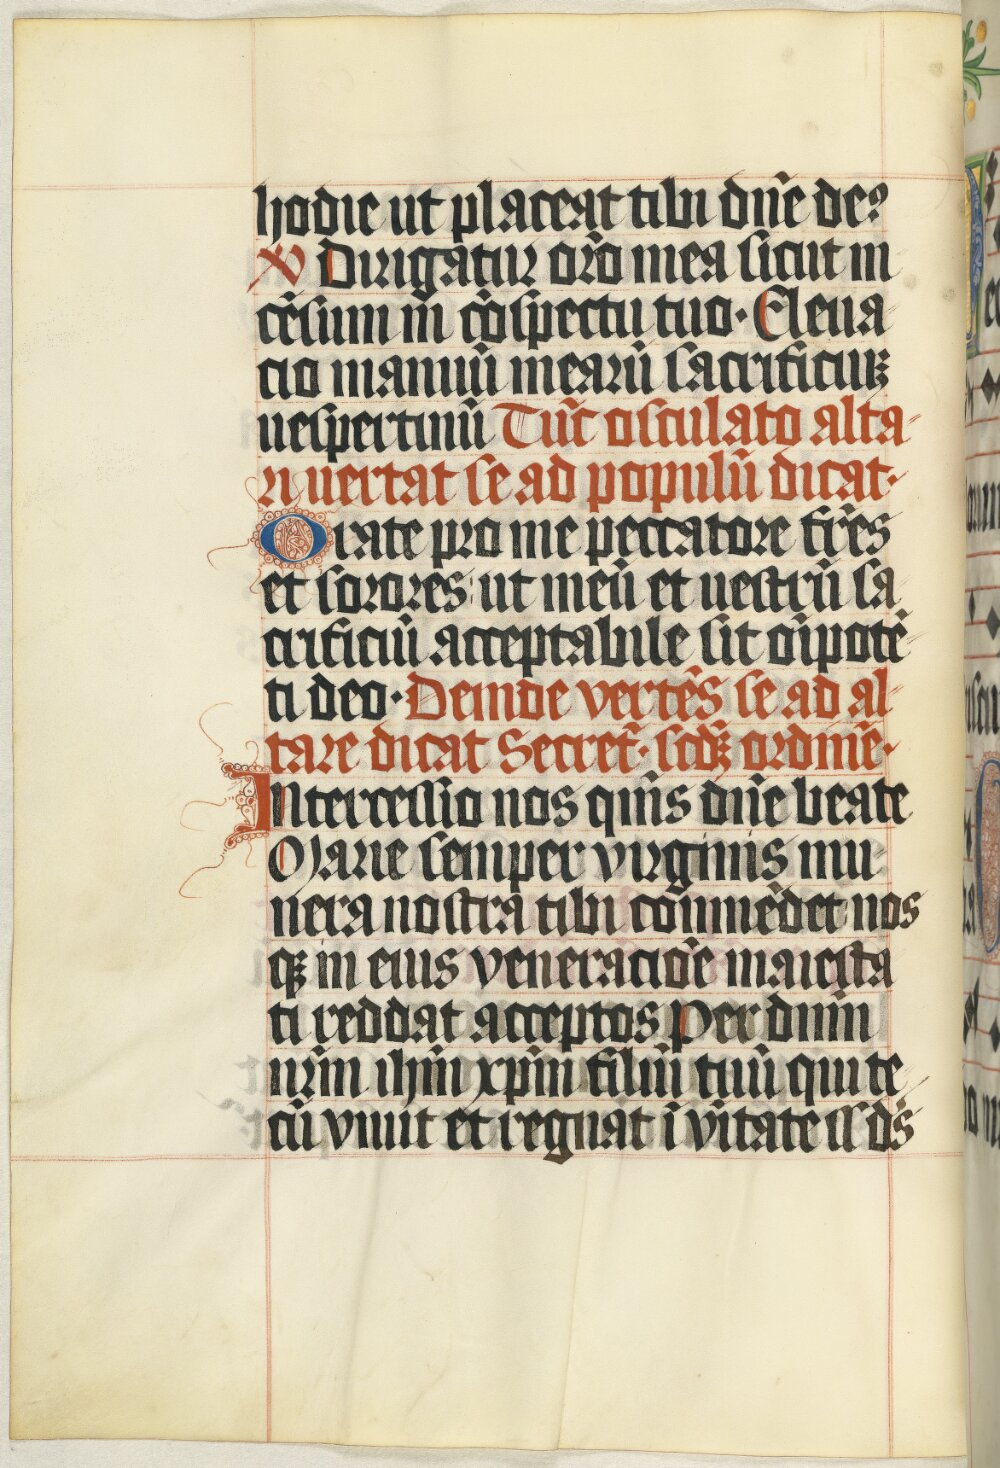 hodie ut placeat tibi dn̄e deꝰ
℣ Dirigatur or̄o mea sicut in
cēsum in cōspectu tuo· Eleua
cio manuū mearū sacrificiuꝫ
uespertinū Tūc osculato alta
ri uertat se ad populū dicat·
Orate pro me peccatore fr̄es
et sorores ut meū et uestrū sa
crificiū acceptabile sit oīpotē
ti deo· Deinde vertēs se ad al
tare dicat Secret̄· scdꝫ ordinē·
Intercessio nos qm̄s dn̄e beate
Marie semper virginis mu
nera nostra tibi commēdet nos
qꝫ in eius veneraciōe maiesta
ti reddat acceptos Per dnm̄
nrm̄ ihm̄ xpm̄ filiū tuū qui te
cū viuit et regnat ī vītate sſ ds̄